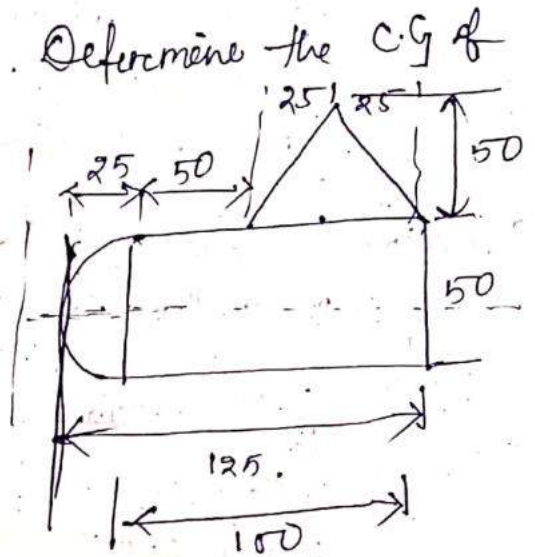 Determine the C.G of
25 25
25 50
50
50
125.
100